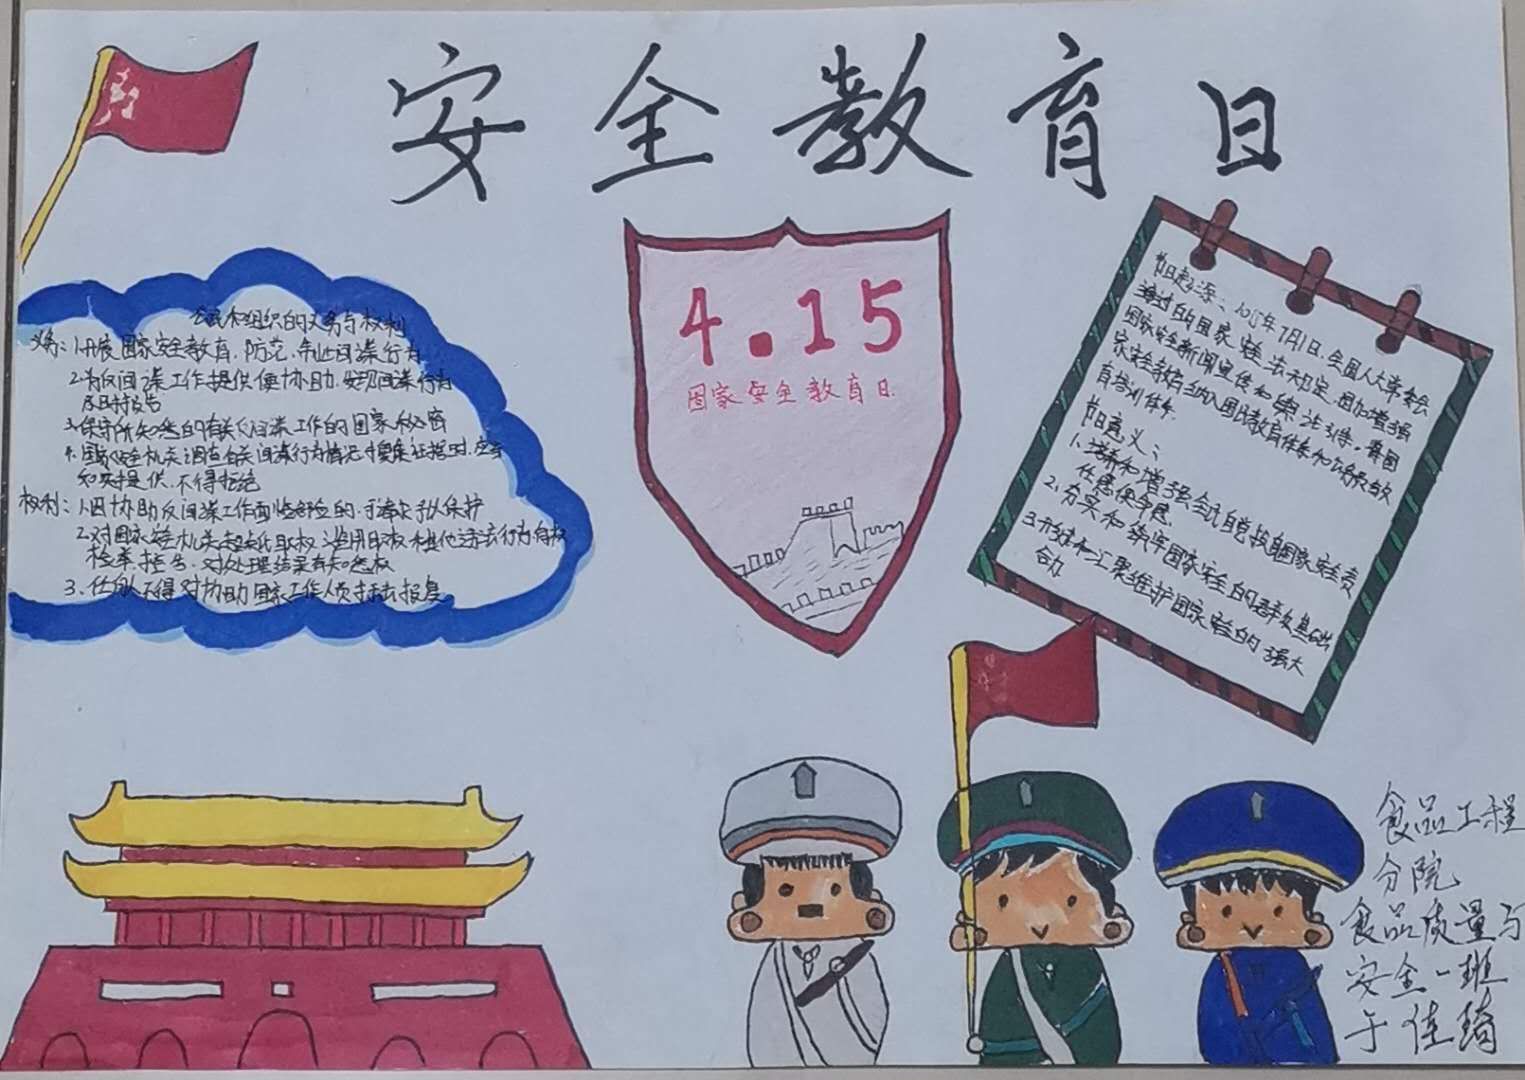 安全教育日
公民和组织的义务与权利
义务：1.开展国家安全教育，防范，制止间谍行为
2.为反间谍工作提供便协助，发现间谍行为
及时报告
3.保守所知悉的有关反间谍工作的国家秘密
4.国家安全机关调查有关间谍行为情况，收集证据时，应当
如实提供，不得拒绝
权利：1.因协助反间谍工作面临危险的，可请求予以保护
2.对国家安全机关超越职权，滥用职权和其他违法行为有权
检举、控告，对处理结果有知悉权
3.任何人不得对协助国家工作人员打击报复
4.15
国家安全教育日
节日起源：2015年7月1日，全国人大常委会
通过的国家安全法规定，国加增强
国家安全新闻宣传和舆论引导，将国
家安全教育纳入国民教育体系和公务员教
育培训体系
节日意义：
1.培养和增强全民自觉投身国家安全责
任感使命感
2.夯实和统牢国家安全的群众基础
3.形成和汇聚维护国家安全的强大
合力
食品工程
分院
食品质量与
安全一班
于佳琦